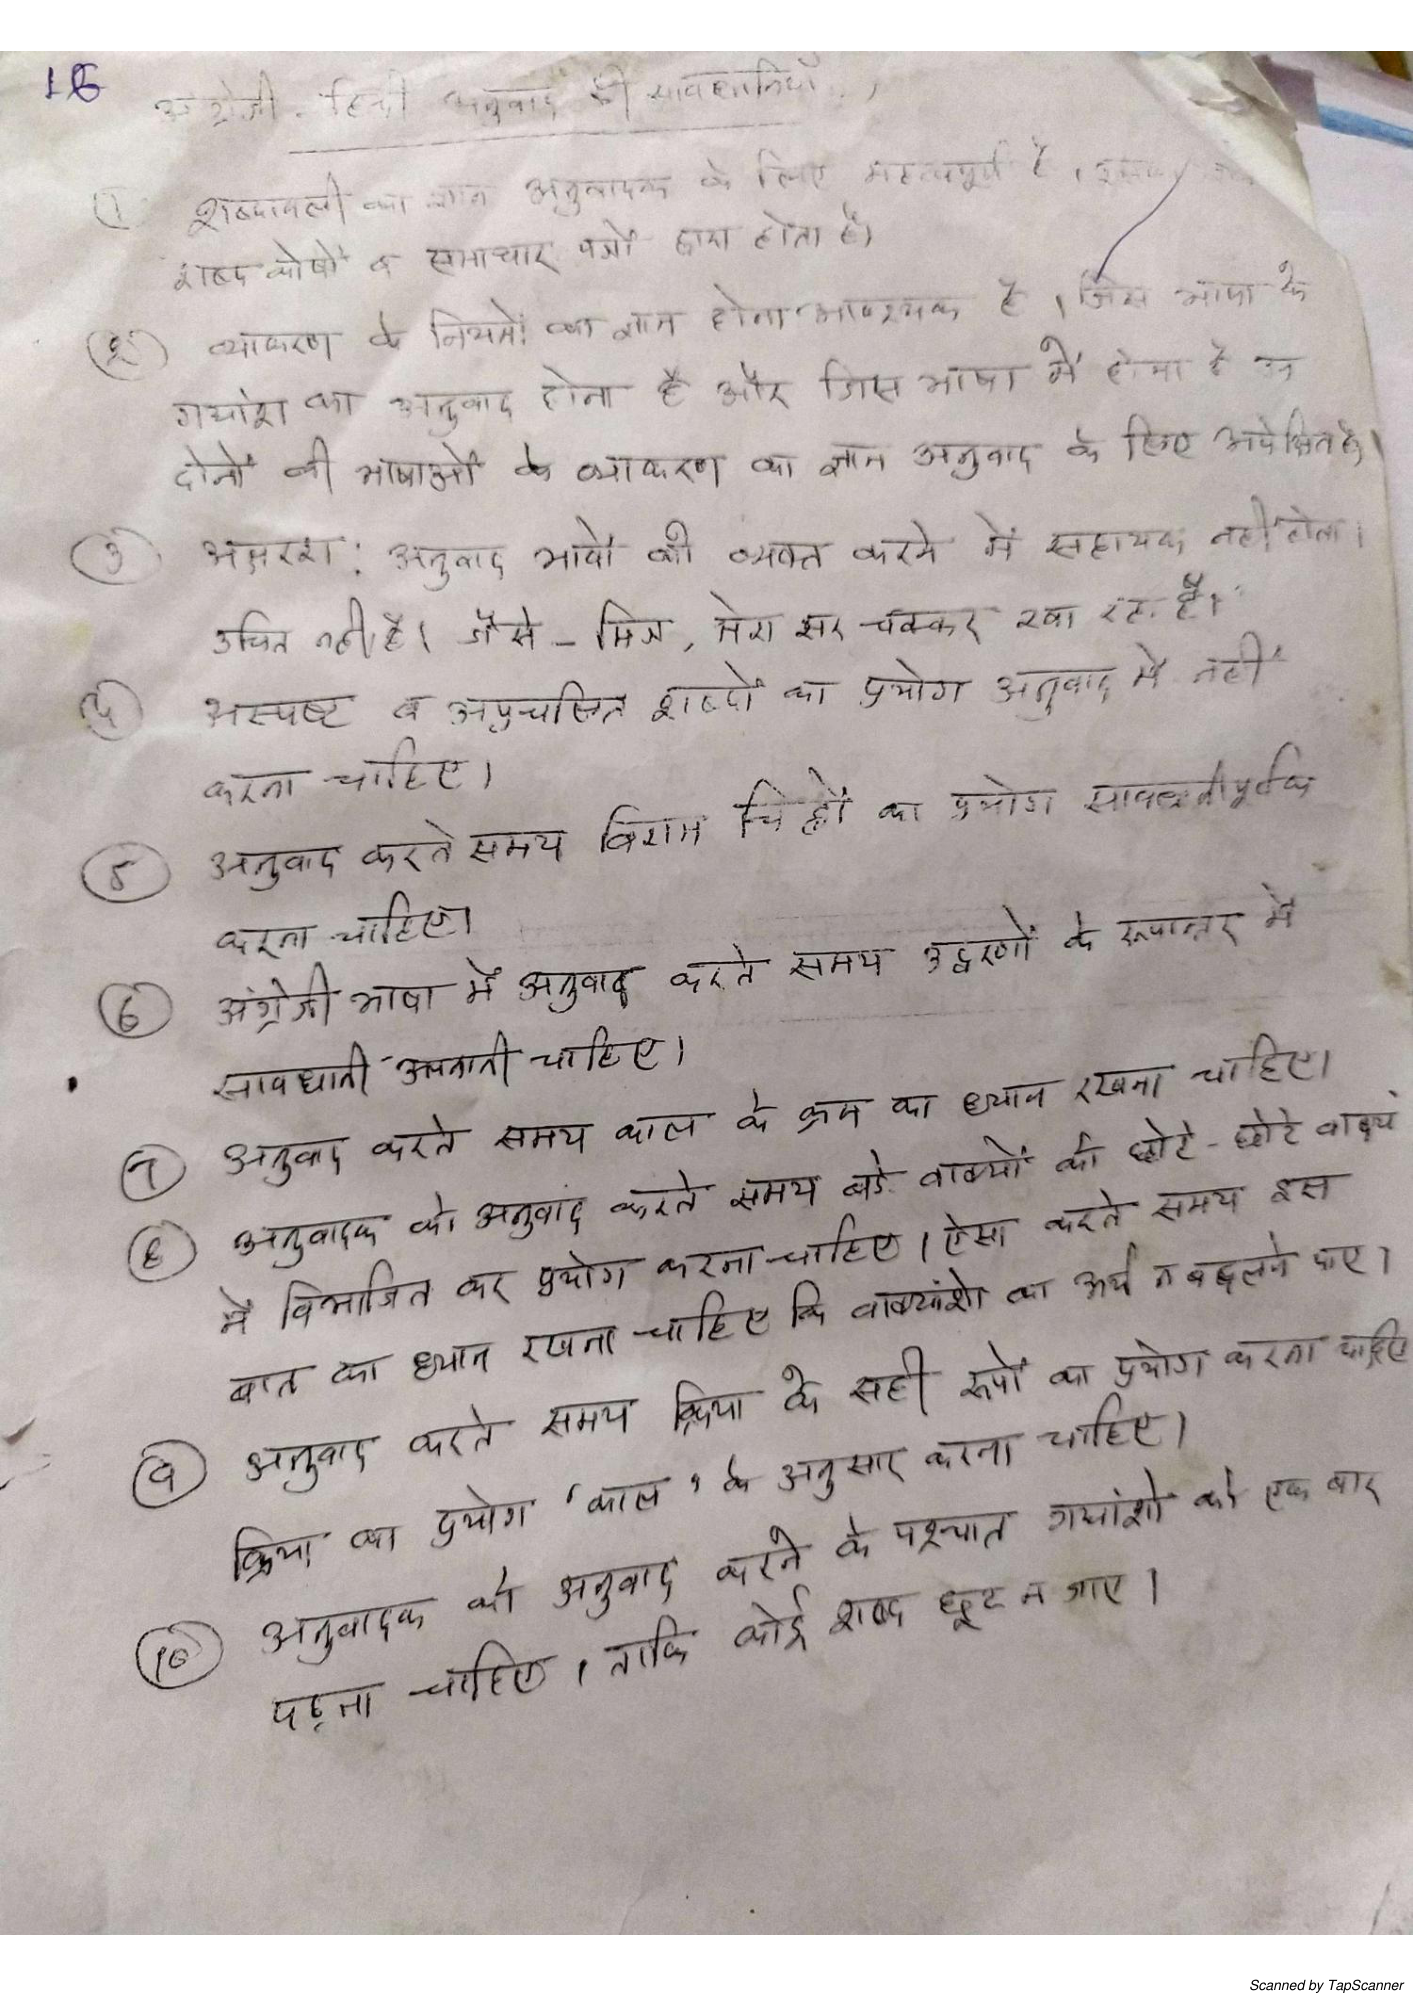 16
अंग्रेजी - हिन्दी अनुवाद की सावधानियाँ
1 शब्दावली का ज्ञान अनुवादक के लिए महत्वपूर्ण है ।
शब्द कोषों व समाचार पत्रों द्वारा होता है।
2 व्याकरण के नियमों का ज्ञान होना आवश्यक है । जिस भाषा के
गद्यांश का अनुवाद होना है और जिस भाषा में होना है
दोनों की भाषाओं के व्याकरण का ज्ञान अनुवाद के लिए अपेक्षित है।
3 अक्षरश: अनुवाद भावों को व्यक्त करने में सहायक नहीं होता।
उचित नहीं है। जैसे - मित्र, मेरा सर चक्कर खा रहा है।
4 अस्पष्ट व अप्रचलित शब्दों का प्रयोग अनुवाद में नहीं
करना चाहिए।
5 अनुवाद करते समय विराम चिह्नों का प्रयोग सावधानीपूर्वक
करना चाहिए।
6 अंग्रेजी भाषा में अनुवाद करते समय उद्धरणों के रूपान्तर में
सावधानी अपनानी चाहिए।
7 अनुवाद करते समय काल के क्रम का ध्यान रखना चाहिए।
8 अनुवादक को अनुवाद करते समय बडे वाक्यों को छोटे - छोटे वाक्यों
में विभाजित कर प्रयोग करना चाहिए । ऐसा करते समय इस
बात का ध्यान रखना चाहिए कि वाक्यांशो का अर्थ न बदलने पाए।
9 अनुवाद करते समय क्रिया के सही रूपों का प्रयोग करना चाहिए
क्रिया का प्रयोग 'काल' के अनुसार करना चाहिए।
10 अनुवादक को अनुवाद करने के पश्चात गद्यांशो को एक बार
पढ़ना चाहिए, ताकि कोई शब्द छूट न जाए।
Scanned by TapScanner